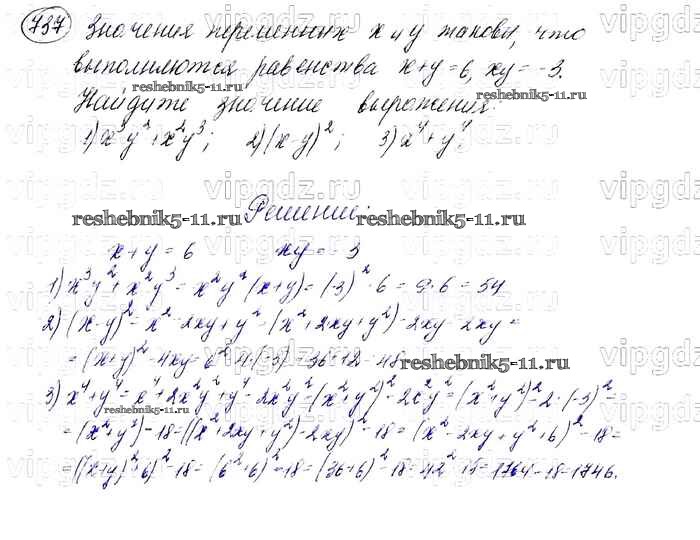 737 Значения переменных x и y таковы, что
выполняются равенства x+y=6, xy=-3.
Найдите значение выражения:
1) x³y²+x²y³; 2) (x-y)²; 3) x⁴+y⁴.
Решение:
x+y=6 xy=-3
1) x³y²+x²y³=x²y²(x+y)=(-3)²·6=9·6=54
2) (x-y)²=x²-2xy+y²=(x²+2xy+y²)-2xy-2xy=
=(x+y)²-4xy=6²-4·(-3)=36+12=48
3) x⁴+y⁴=x⁴+2x²y²+y⁴-2x²y²=(x²+y²)²-2x²y²=(x²+y²)²-2·(-3)²=
=(x²+y²)²-18=((x²+2xy+y²)-2xy)²-18=(x²+2xy+y²+6)²-18=
=((x+y)²+6)²-18=(6²+6)²-18=(36+6)²-18=42²-18=1764-18=1746.
reshebnik5-11.ru
vipgdz.ru